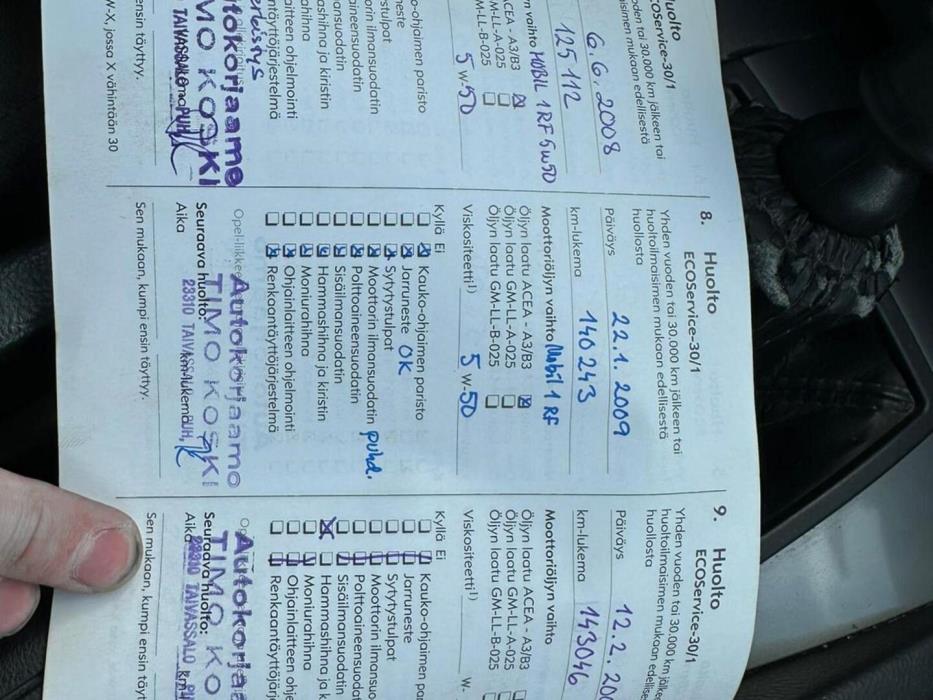 Huolto
ECOService-30/1
oden tai 30.000 km jälkeen tai
aisimen mukaan edellisestä
6.6.2008
125 112
n vaihto MOBIL 1 RF 5w50
ACEA - A3/B3
M-LL-A-025
M-LL-B-025
5 W-50
o-ohjaimen paristo
neste
stulpat
orin ilmansuodatin
aineensuodatin
ansuodatin
ashihna ja kiristin
rahihna
aitten ohjelmointi
ntäyttöjärjestelmä
utokorjaamo
TIMO KOSKI
ensin täyttyy.
W-X, jossa X vähintään 30
8. Huolto
ECOService-30/1
Yhden vuoden tai 30.000 km jälkeen tai
huoltoilmaisimen mukaan edellisestä
huollosta
Päiväys 22.1.2009
km-lukema 140243
Moottoriöljyn vaihto Mobil 1 RF
Öljyn laatu ACEA - A3/B3
Öljyn laatu GM-LL-A-025
Öljyn laatu GM-LL-B-025
Viskositeetti1) 5 W-50
Kyllä Ei
Kauko-ohjaimen paristo
Jarruneste OK
Sytytystulpat
Moottorin ilmansuodatin puhd.
Polttoaineensuodatin
Sisäilmansuodatin
Hammashihna ja kiristin
Moniurahihna
Ohjainlaitteen ohjelmointi
Renkaantäyttöjärjestelmä
Opel-liikkeen
Autokorjaamo
TIMO KOSKI
Seuraava huolto:
Aika
Sen mukaan, kumpi ensin täyttyy.
9. Huolto
ECOService-30/1
Yhden vuoden tai 30.000 km jälke
huoltoilmaisimen mukaan edellise
huollosta
Päiväys 12.2.20
km-lukema 143046
Moottoriöljyn vaihto
Öljyn laatu ACEA - A3/B3
Öljyn laatu GM-LL-A-025
Öljyn laatu GM-LL-B-025
Viskositeetti1) W-
Kyllä Ei
Kauko-ohjaimen pa
Jarruneste
Sytytystulpat
Moottorin ilmansuo
Polttoaineensuodat
Sisäilmansuodatin
Hammashihna ja k
Moniurahihna
Ohjainlaitteen ohje
Renkaantäyttöjärj
Autokorjaa
TIMO KO
Seuraava huolto:
Aika
23310 TAIVASSALO
Sen mukaan, kumpi ensin täyt